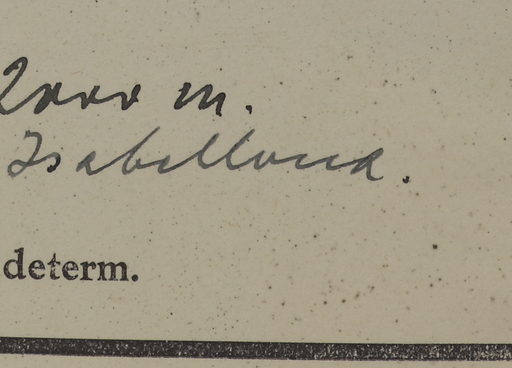 2000 m.
Isabellona.
determ.